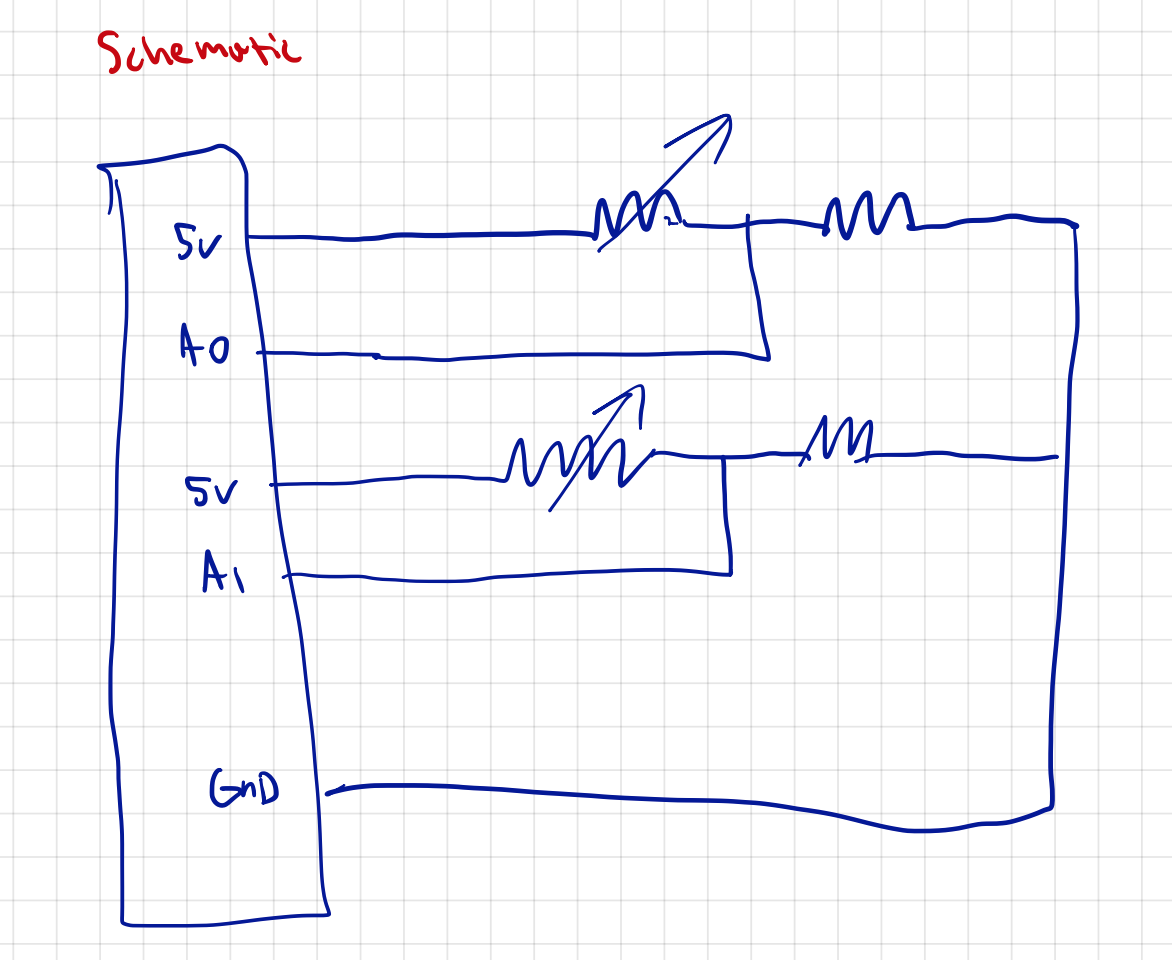 Schematic
5V
A0
5V
A1
GnD